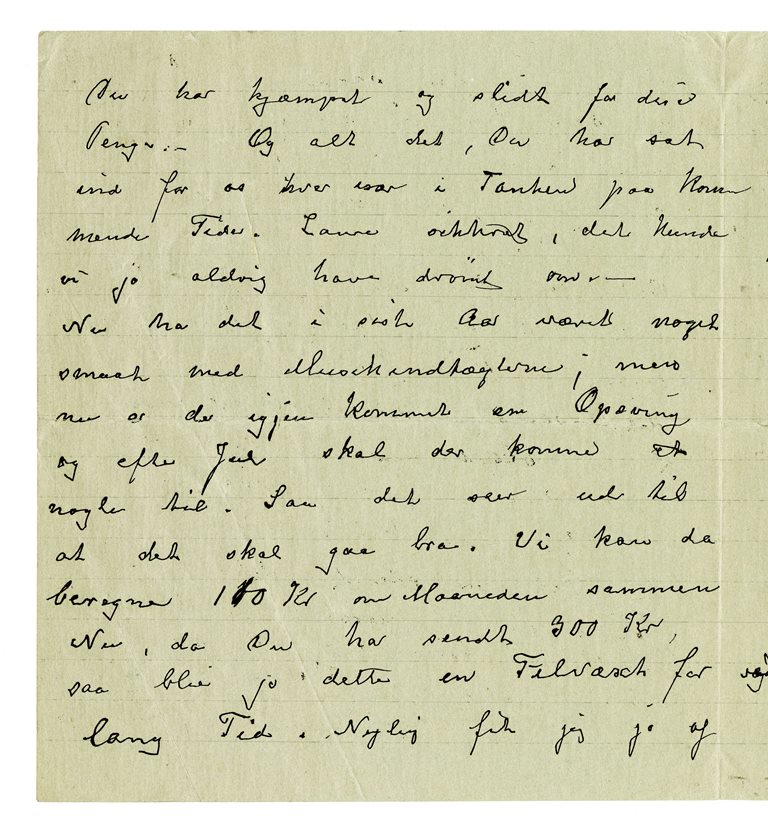 Du har kjæmpet og slidt for disse
Penge. — Og alt det, Du har sat
ind for os hver især i Tanken paa Kom
mende Tider. Saave det kunde
vi jo aldrig have drømt om. —
Nu ha det i sidste Aar været noget
smaat med Musikindtægterne; men
nu er der igjen kommet en Opsving
og efter Jul skal der komme
nogle til. Saa det seer ud til
at det skal gaa bra. Vi kan da
beregne 100 Kr om Maaneden sammen
Nu, da Du har sendt 300 Kr,
saa blir jo dette en Tilvæxt for
lang Tid. Nylig fik jeg jo af